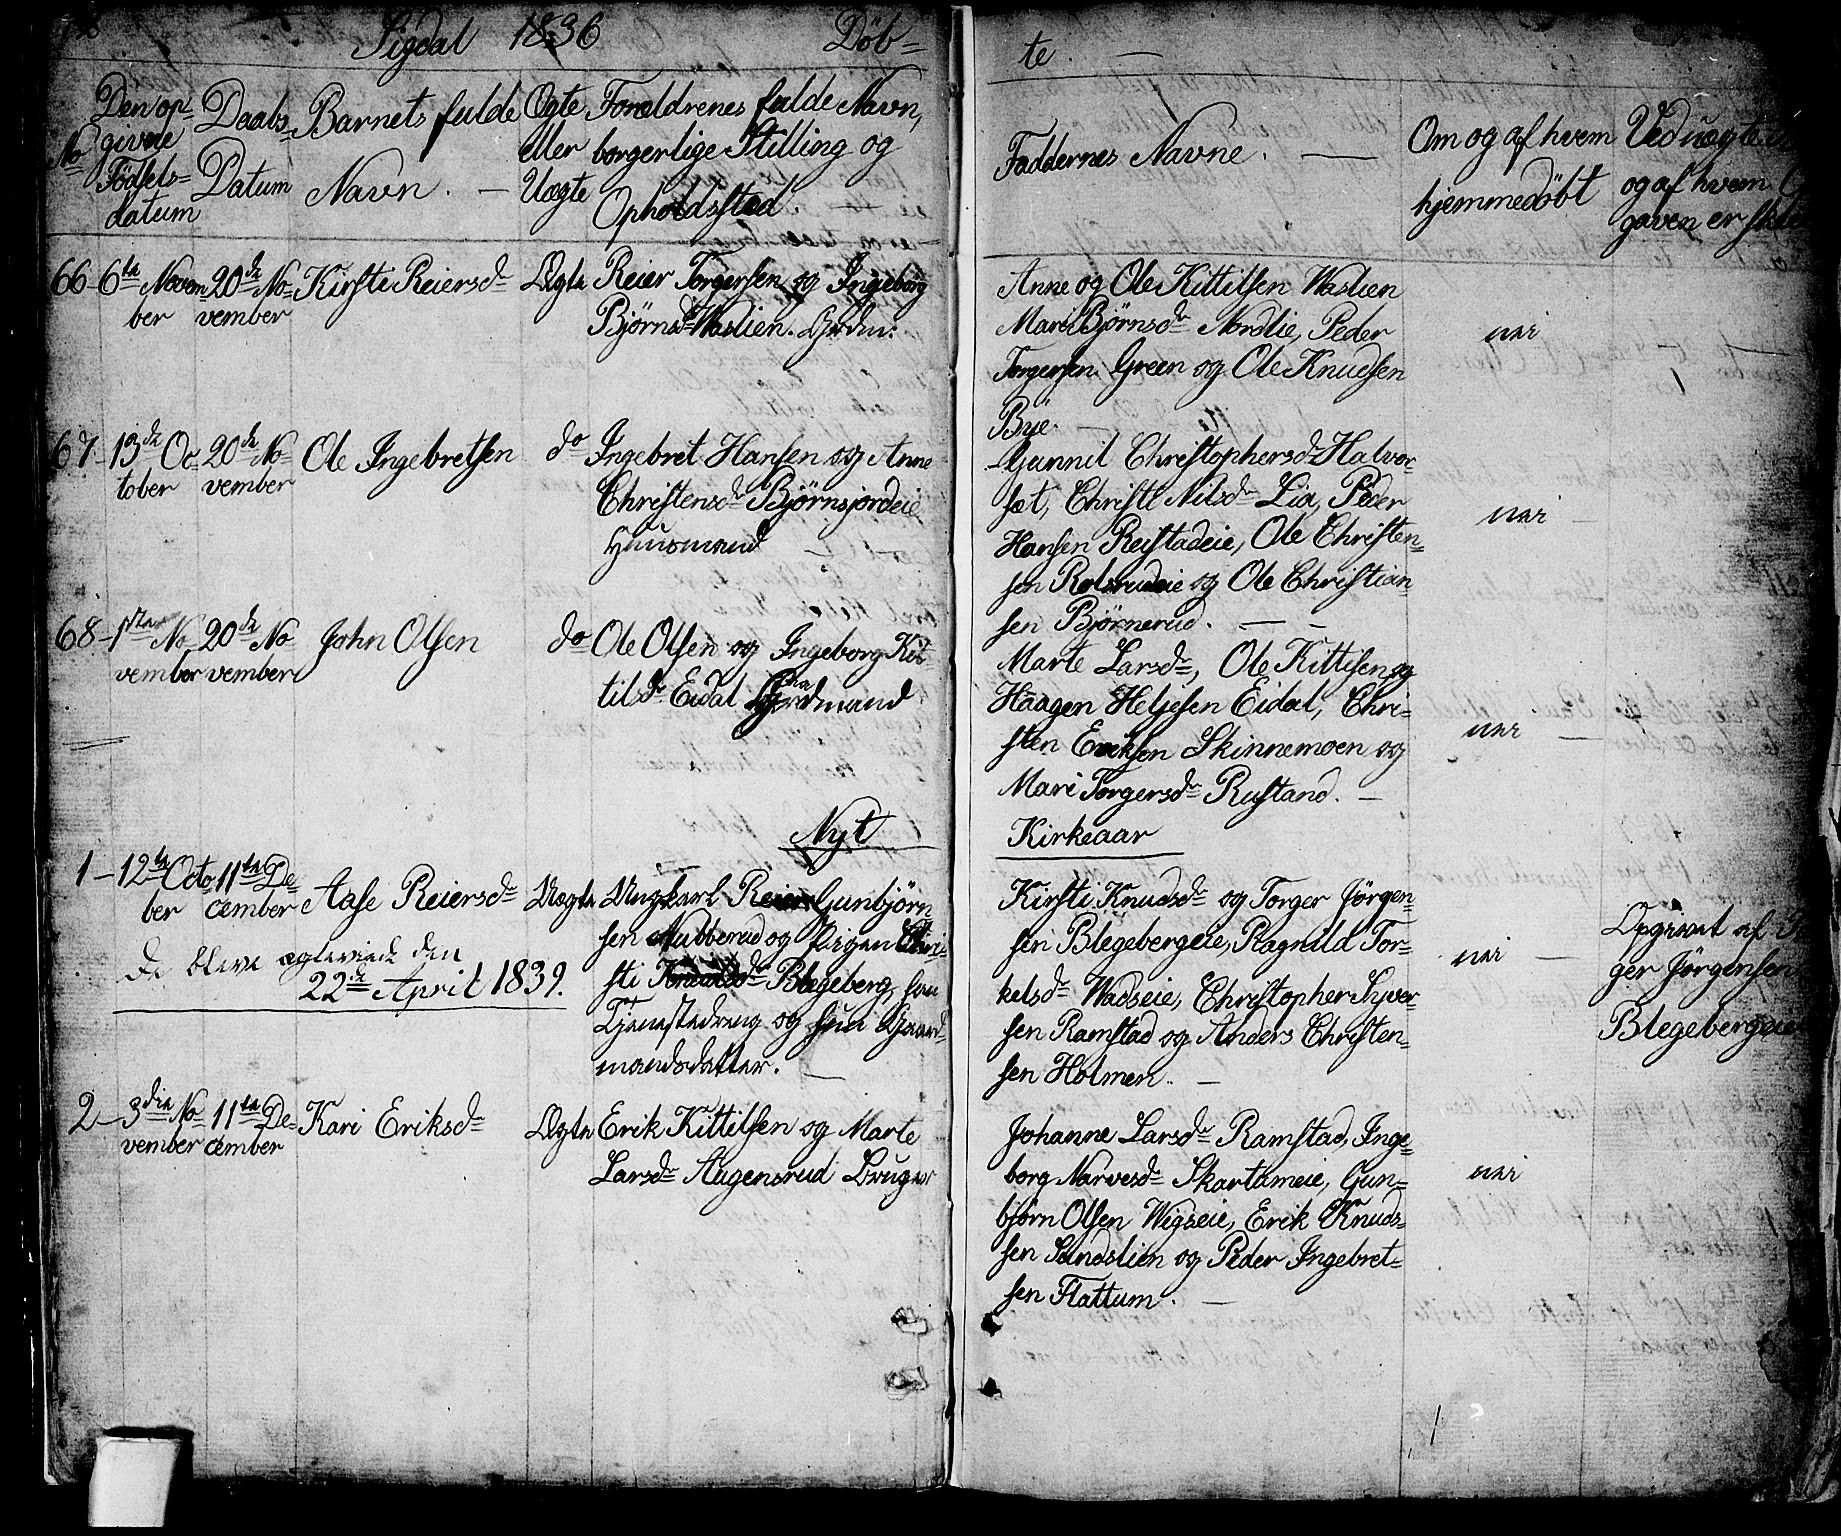 Sigdal 1836 Döb=
te. —
No
Den op=
givne
Födsels=
datum
Daabs=
Datum
Barnets fulde
Navn. —
Ægte
eller
Uægte
Forældrenes fulde Navn,
borgerlige Stilling og
Opholdsstæd
Faddernes Navne. —
Om og af hvem
hjemmedöbt
Ved uægte
og af hvem
gaven er
66 6te Novem
ber
20de No=
vember
Kirsti Reiersdr
Ægte
Reier Torgersen og Ingeborg
Björnsdr Waslien.
Anne og Ole Kittilsen Waslien
Mari Björnsdr Nordlie, Peder
Torgersen Green og Ole Knudsen
Bye. —
nei
67 13de Oc
tober
20de No=
vember
Ole Ingebretsen
do
Ingebret Hansen og Anne
Christensdr Björnsjordeie
Huusmand —
Gunnil Christophersdr Halvor
sæt, Christi Nilsdr Lia, Peder
Hansen Reistadeie, Ole Christen=
sen Rolsrudeie og Ole Christian
sen Björnerud. —
nei —
68 1ste No=
vember
20de No=
vember
John Olsen
do
Ole Olsen og Ingeborg Kit=
tilsdr Eidal Gaardmand
Marte Larsdr, Ole Kittilsen og
Haagen Heljesen Eidal, Chri=
sten Eriksen Skinnemoen og
Mari Torgersdr Rustand. —
nei —
Nyt
Kirkeaar
1 — 12te Octo
ber
11te De=
cember
Aase Reiersdr
Uægte
Ungkarl Reier Gunbjörn
sen Nubberud og Pigen Chri=
sti Knudsdr Blegeberg, han
Tjenestedreng og hun Gaard=
mandsdatter. —
De bleve ægteviede den
22de April 1839.
Kirsti Knudsdr og Torger Jörgen=
sen Blegebergeie, Ragnild Tor=
kelsdr Wadseie, Christopher Syver
sen Ramstad og Anders Christen=
sen Holmen. —
nei —
Opgivet af
ger Jörgensen
Blegebergeie
2 — 3die No=
vember
11te De=
cember
Kari Eriksdr
Ægte
Erik Kittilsen og Marte
Larsdr Augensrud Bruger
Johanne Larsdr Ramstad, Inge=
borg Narvesdr Skartumeie, Gun=
björn Olsen Wigseie, Erik Knuds=
sen Sandslien og Peder Ingebret=
sen Flattum. —
nei